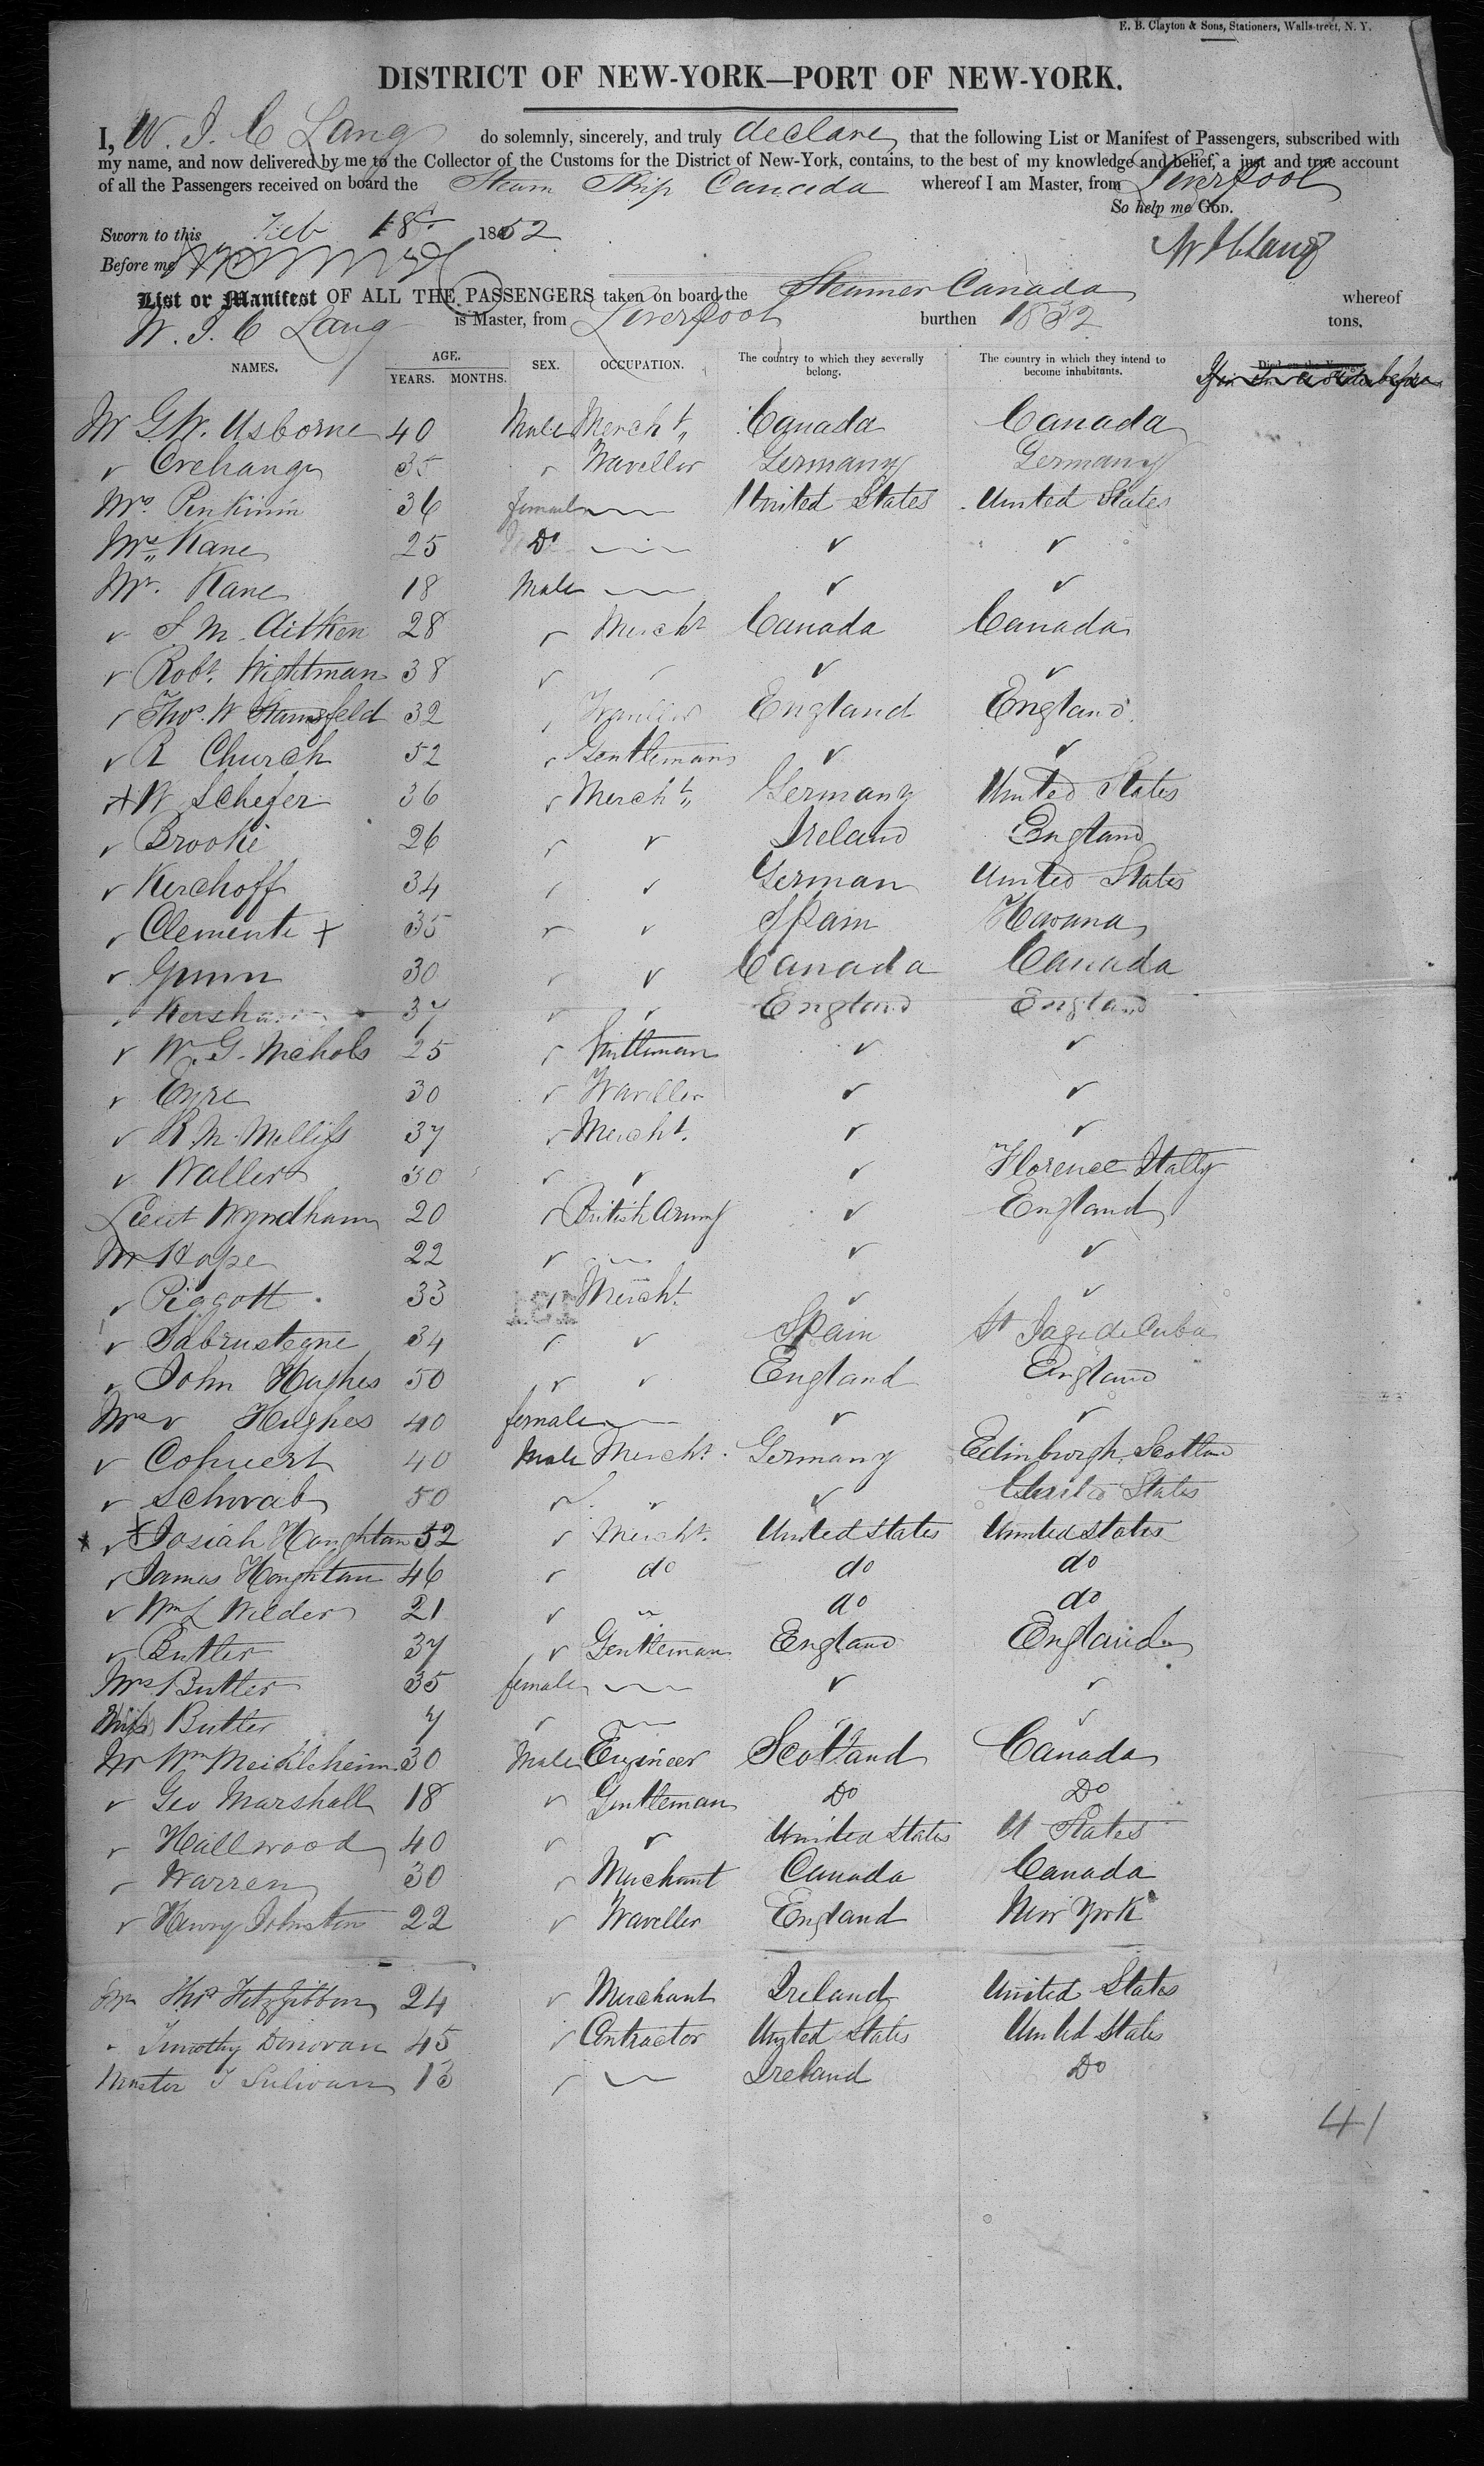 E. B. Clayton & Sons, Stationers, Wall-street, N. Y.
DISTRICT OF NEW-YORK—PORT OF NEW-YORK.
I, W. J. C Lang do solemnly, sincerely, and truly declare that the following List or Manifest of Passengers, subscribed with
my name, and now delivered by me to the Collector of the Customs for the District of New-York, contains, to the best of my knowledge and belief, a just and true account
of all the Passengers received on board the Steam Ship Canada whereof I am Master, from Liverpool
So help me GOD.
Sworn to this Feb 18 1852
W J C Lang
Before me
List or Manifest OF ALL THE PASSENGERS taken on board the Steamer Canada whereof
W. J. C Lang is Master, from Liverpool burthen 1832 tons.
NAMES. AGE. YEARS. MONTHS. SEX. OCCUPATION. The country to which they severally belong. The country in which they intend to become inhabitants. Died on the Voyage
Mr G. W. Usborne 40 Male Mercht Canada Canada
✓ 35 ✓ Traveller Germany Germany
Mrs 36 female — United States United States
Mrs Kane 25 Do — ✓ ✓
Mr. Kane 18 Male — ✓ ✓
✓ S M Aitken 28 ✓ Mercht Canada Canada
✓ Robt. Wightman 38 ✓ ✓ ✓ ✓
✓ Thos. W Stansfeld 32 ✓ England England
✓ R Church 52 ✓ Gentleman ✓ ✓
W Schefer 36 ✓ Mercht Germany United States
✓ Brooke 26 ✓ ✓ Ireland England
✓ Kerchoff 34 ✓ ✓ German United States
✓ Clemente + 35 ✓ ✓ Spain Havana
✓ Gunn 30 ✓ ✓ Canada Canada
✓ 37 ✓ ✓ England England
✓ W. G. Nichols 25 ✓ Gentleman ✓ ✓
✓ Eyre 30 ✓ Traveller ✓ ✓
✓ R. M. Melliss 37 ✓ Mercht. ✓ ✓
✓ 30 ✓ ✓ ✓ Florence Itally
Lieut Wyndham 20 ✓ British Army ✓ England
Mr Hope 22 ✓ — ✓ ✓
✓ Piggott 33 ✓ Mercht. ✓ ✓
✓ 34 ✓ ✓ Spain St Jago de Cuba
✓ John Hughes 50 ✓ ✓ England England
Mrs ✓ Hughes 40 female — ✓ ✓
✓ 40 Male Mercht. Germany Edinburgh Scotland
✓ Schwab 50 ✓ ✓ ✓ United States
x ✓ Josiah Houghton 52 ✓ Mercht. United States United States
✓ James Houghton 46 ✓ do do do
✓ Wm L Wilder 21 ✓ " do do
✓ Butler 37 ✓ Gentleman England England
Mrs Butler 35 female — ✓ ✓
Miss Butler 7 ✓ — ✓
Mr Wm Meikleheim 30 Male Engineer Scotland Canada
✓ Geo Marshall 18 ✓ Gentleman Do Do
✓ Hallwood 40 ✓ ✓ United States U States
✓ Warren 30 ✓ Merchant Canada Canada
✓ Henry Johnston 22 ✓ Traveller England New York
Mr Thos Fitzgibbon 24 ✓ Merchant Ireland United States
" Timothy Donovan 45 ✓ Contractor United States United States
Master J Sulivan 13 ✓ — Ireland Do
41